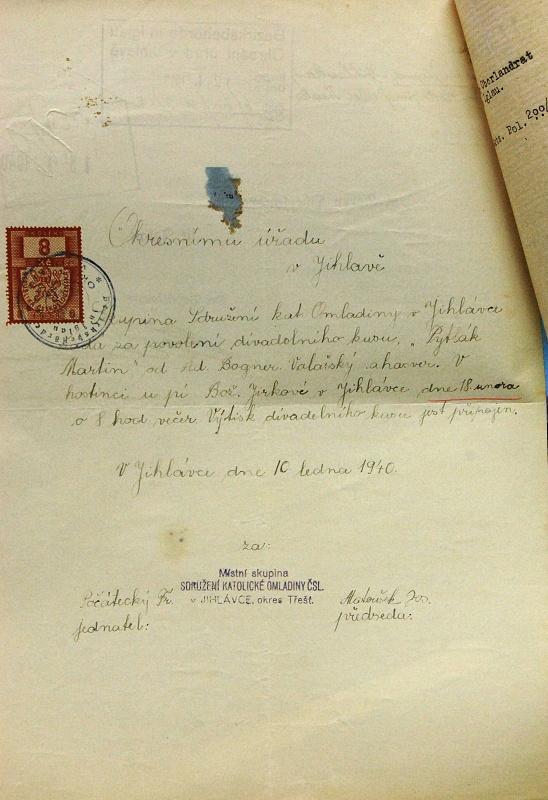 Oberlandrat
Iglau.
Pol. 200/
8
Okresnímu úřadu
v Jihlavě
Skupina Sdružení kat. Omladiny v Jihlávce
žádá za povolení divadelního kusu, "Pytlák
Martin" od Ed. Bogner. Valašský ahasver. V
hostinci u pí Bož. Jirkové v Jihlávce, dne 18. února
o 8 hod večer. Výtisk divadelního kusu jest připojen.
V Jihlávce dne 10 ledna 1940.
za:
Místní skupina
SDRUŽENÍ KATOLICKÉ OMLADINY ČSL.
v JIHLÁVCE, okres Třešť.
Počátecký Fr.
jednatel:
Matoušek Jos.
předseda: